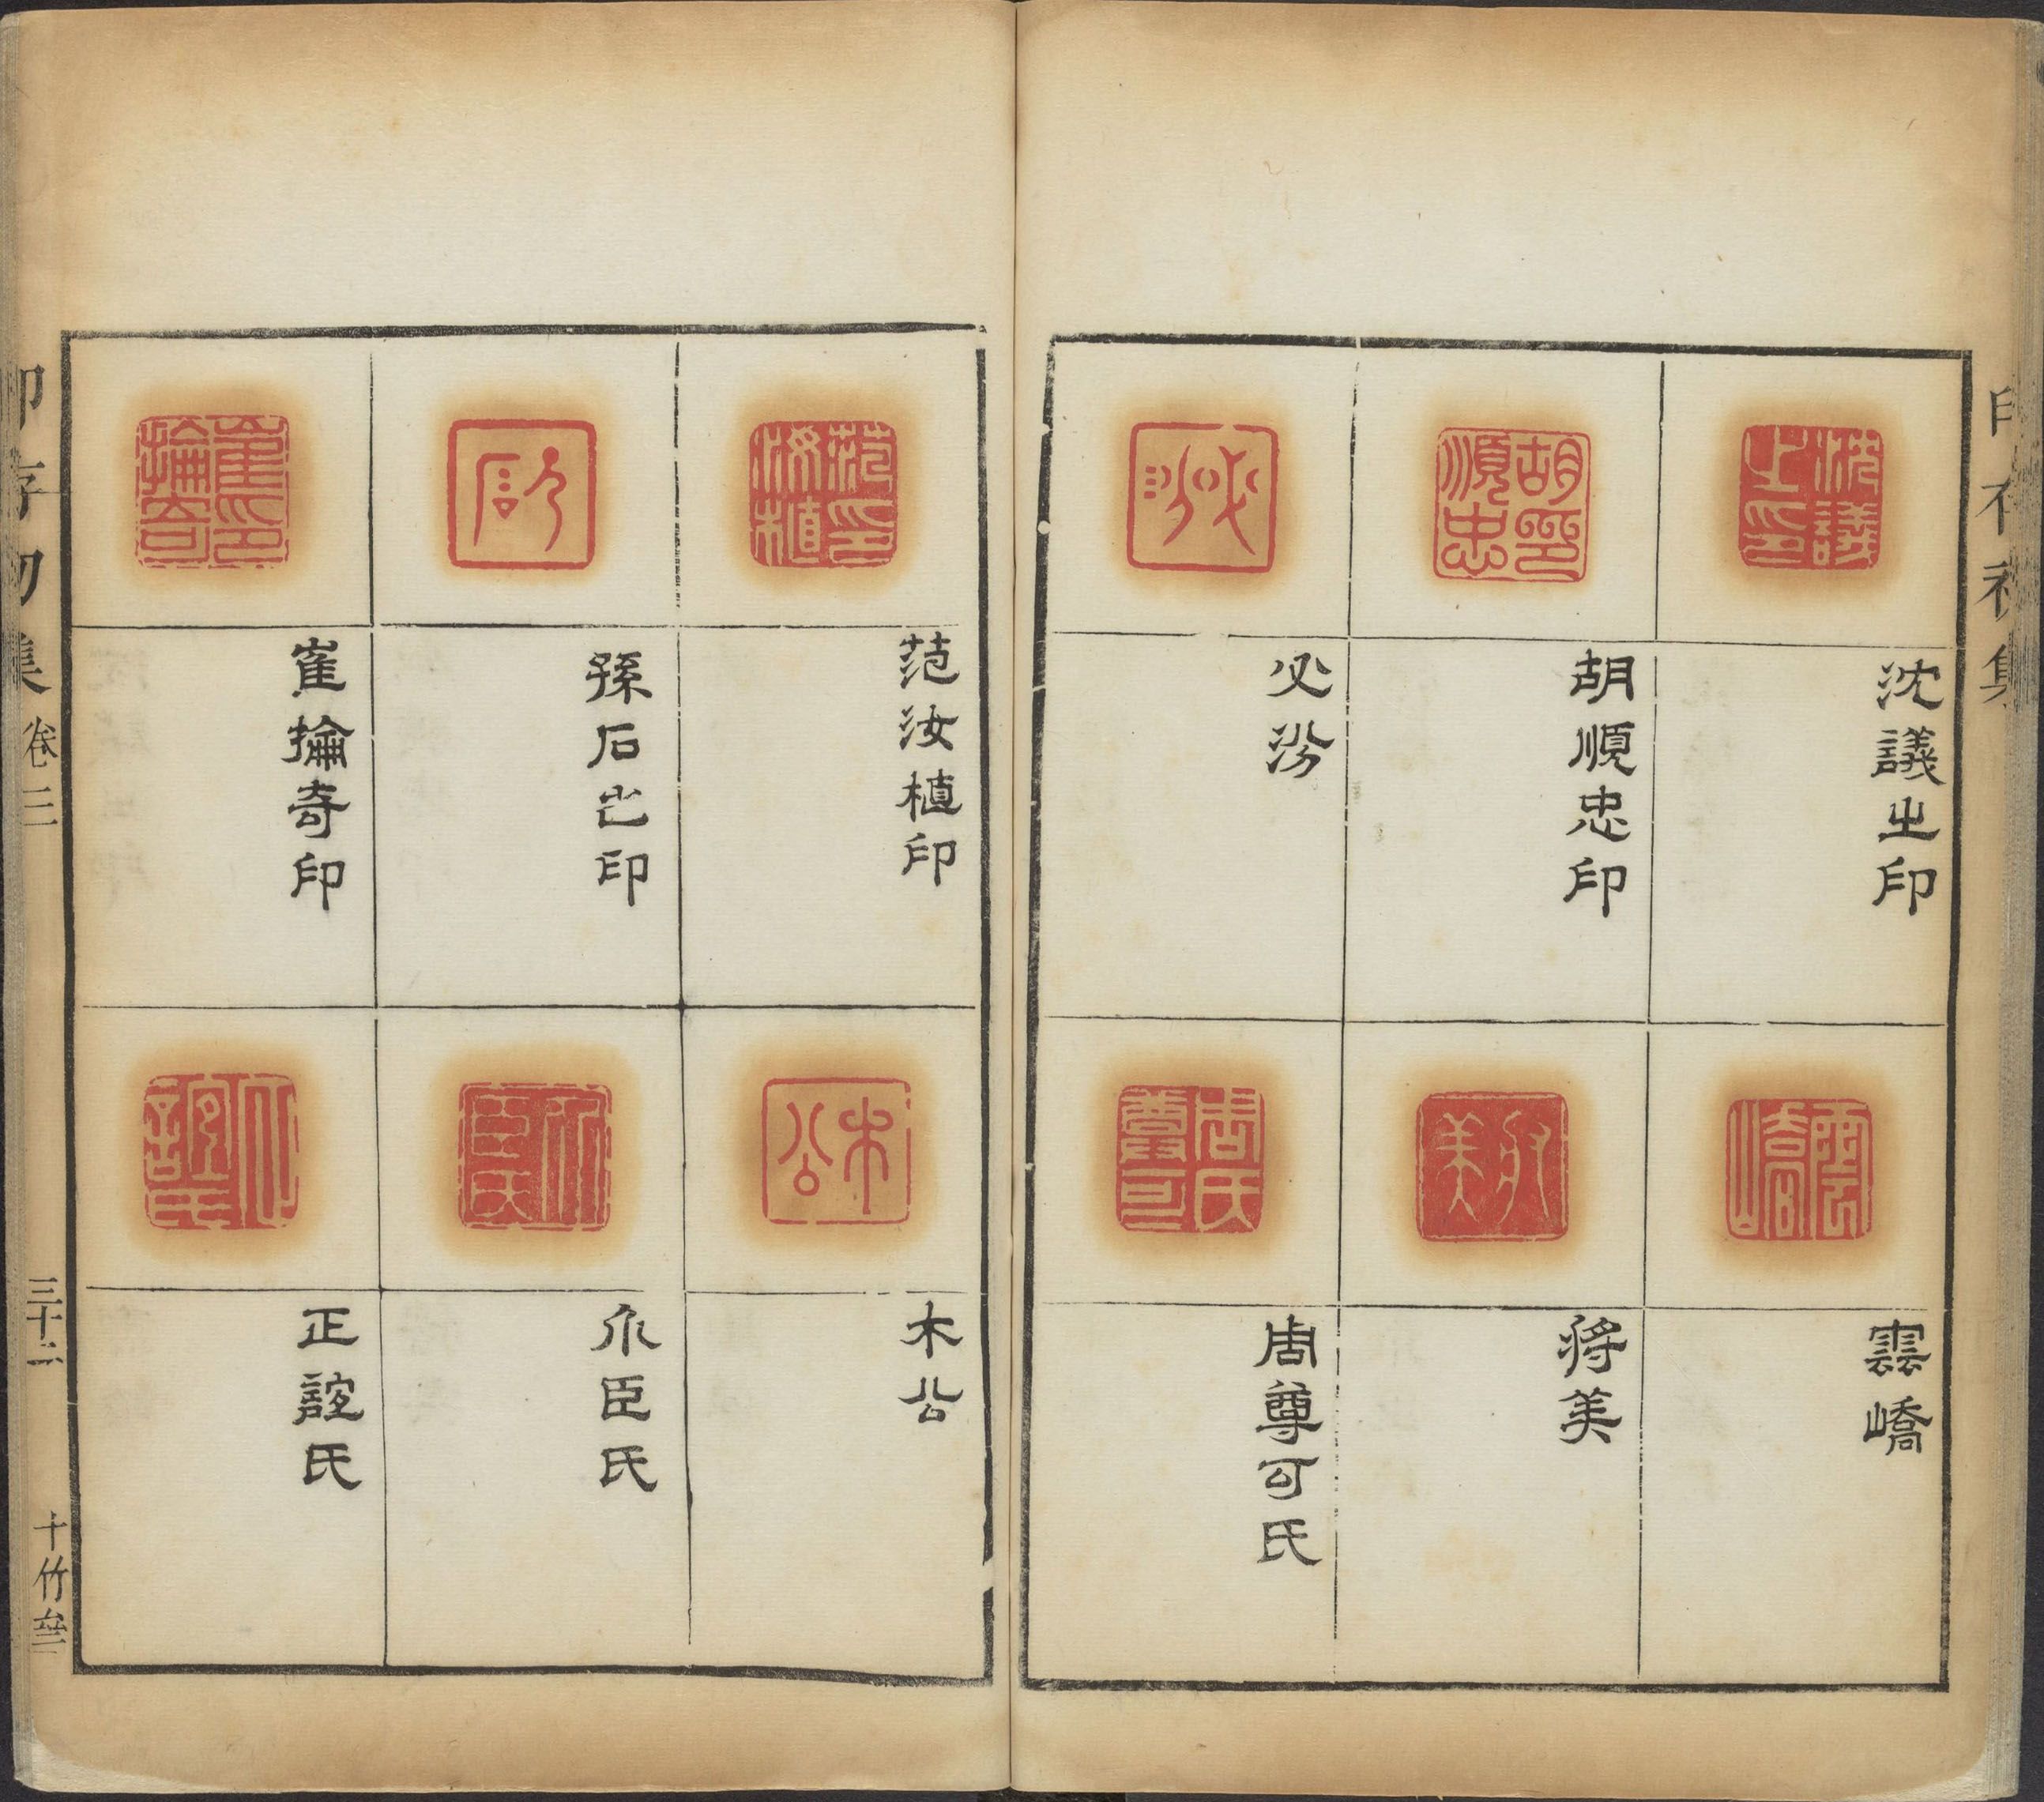 印存初集
沈議之印
胡順忠印
必汾
雲嶠
將美
周尊可氏
范汝植印
孫石之印
崔掄奇印
木公
介臣氏
正誼氏
印存初集 卷三 三十二 十竹齋